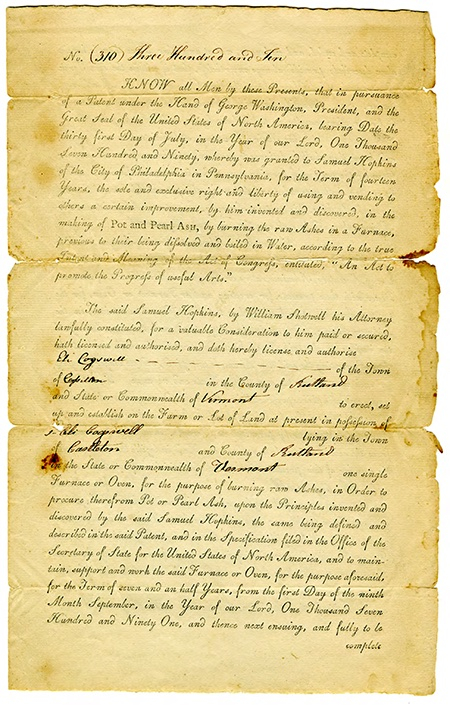 No. (310) Three Hundred and Ten
KNOW all Men by these Presents, that in pursuance
of a Patent under the Hand of George Washington, President, and the
Great Seal of the United States of North America, bearing Date the
thirty first Day of July, in the Year of our Lord, One Thousand
Seven Hundred and Ninety, whereby was granted to Samuel Hopkins
of the City of Philadelphia in Pennsylvania, for the Term of fourteen
Years, the sole and exclusive right and liberty of using and vending to
others a certain improvement, by him invented and discovered, in the
making of Pot and Pearl Ash, by burning the raw Ashes in a Furnace,
previous to their being dissolved and boiled in Water, according to the true
Intent and Meaning of the Act of Congress, entituled, "An Act to
promote the Progress of useful Arts."
The said Samuel Hopkins, by William Shotwell his Attorney
lawfully constituted, for a valuable Consideration to him paid or secured,
hath licensed and authorised, and doth hereby license and authorise
Eli Cogswell of the Town
of Castleton in the County of Rutland
and State or Commonwealth of Vermont to erect, set
up and establish on the Farm or Lot of Land at present in possession of
Eli Cogswell lying in the Town
of Castleton and County of Rutland
in the State or Commonwealth of Vermont one single
Furnace or Oven, for the purpose of burning raw Ashes, in Order to
procure therefrom Pot or Pearl Ash, upon the Principles invented and
discovered by the said Samuel Hopkins, the same being defined and
described in the said Patent, and in the Specification filed in the Office of the
Secretary of State for the United States of North America, and to main-
tain, support and work the said Furnace or Oven, for the purpose aforesaid,
for the Term of seven and an half Years, from the first Day of the ninth
Month September, in the Year of our Lord, One Thousand Seven
Hundred and Ninety One, and thence next ensuing, and fully to be
complete